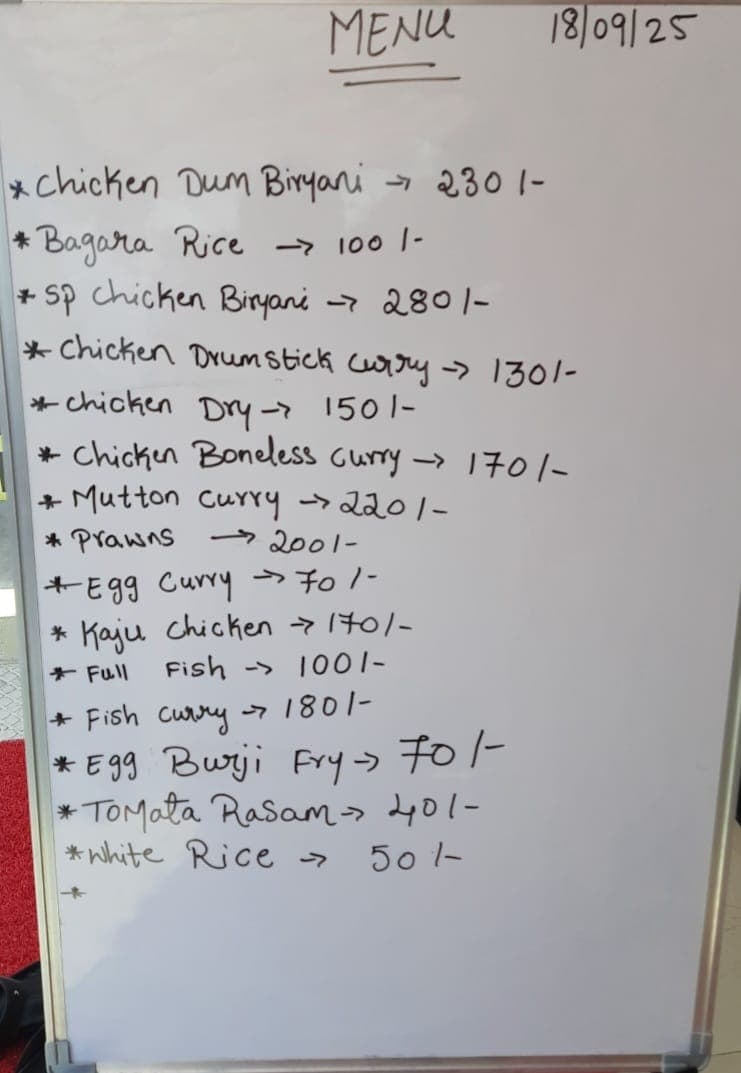 MENU 18/09/25
* Chicken Dum Biryani → 230 /-
* Bagara Rice → 100 /-
* SP Chicken Biryani → 280 /-
* Chicken Drumstick Curry → 130/-
* Chicken Dry → 150 /-
* Chicken Boneless Curry → 170 /-
* Mutton Curry → 220 /-
* Prawns → 200 /-
* Egg Curry → 70 /-
* Kaju Chicken → 170/-
* Full Fish → 100 /-
* Fish Curry → 180 /-
* Egg Burji Fry → 70 /-
* Tomata Rasam → 40 /-
* White Rice → 50 /-
*